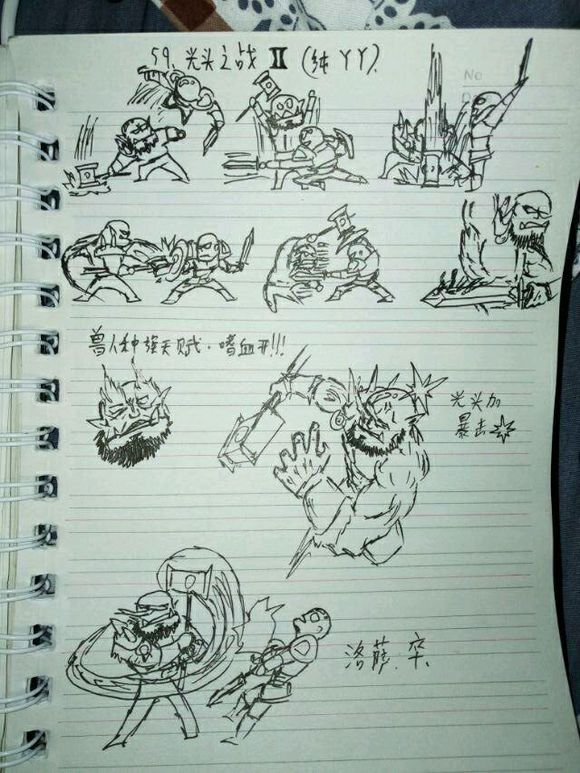 59. 光头之战 II (纯YY).
No
兽人种族天赋·嗜血开!!!
光头加
暴击
洛萨. 卒.